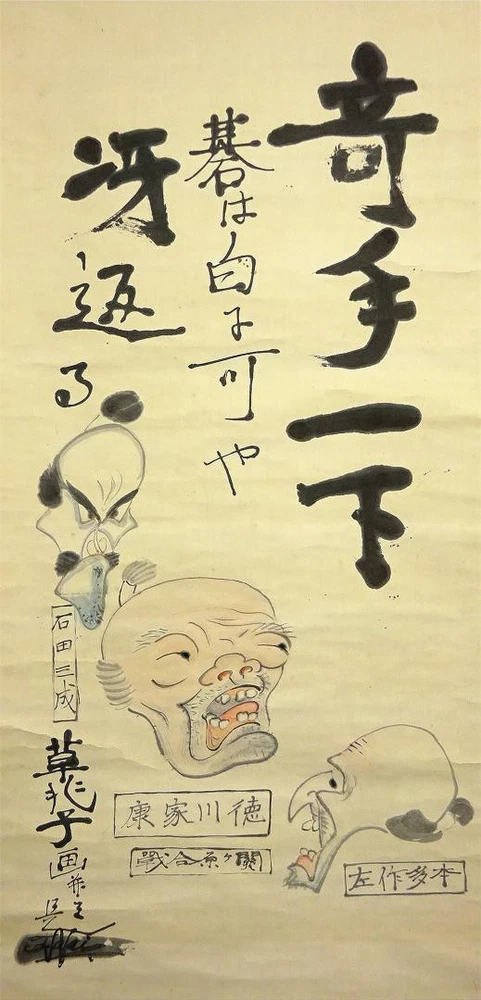 竒手一下
碁は白 可や
冴返る
石田三成
徳川家康
關ヶ原合戰
本多作左
草 子画